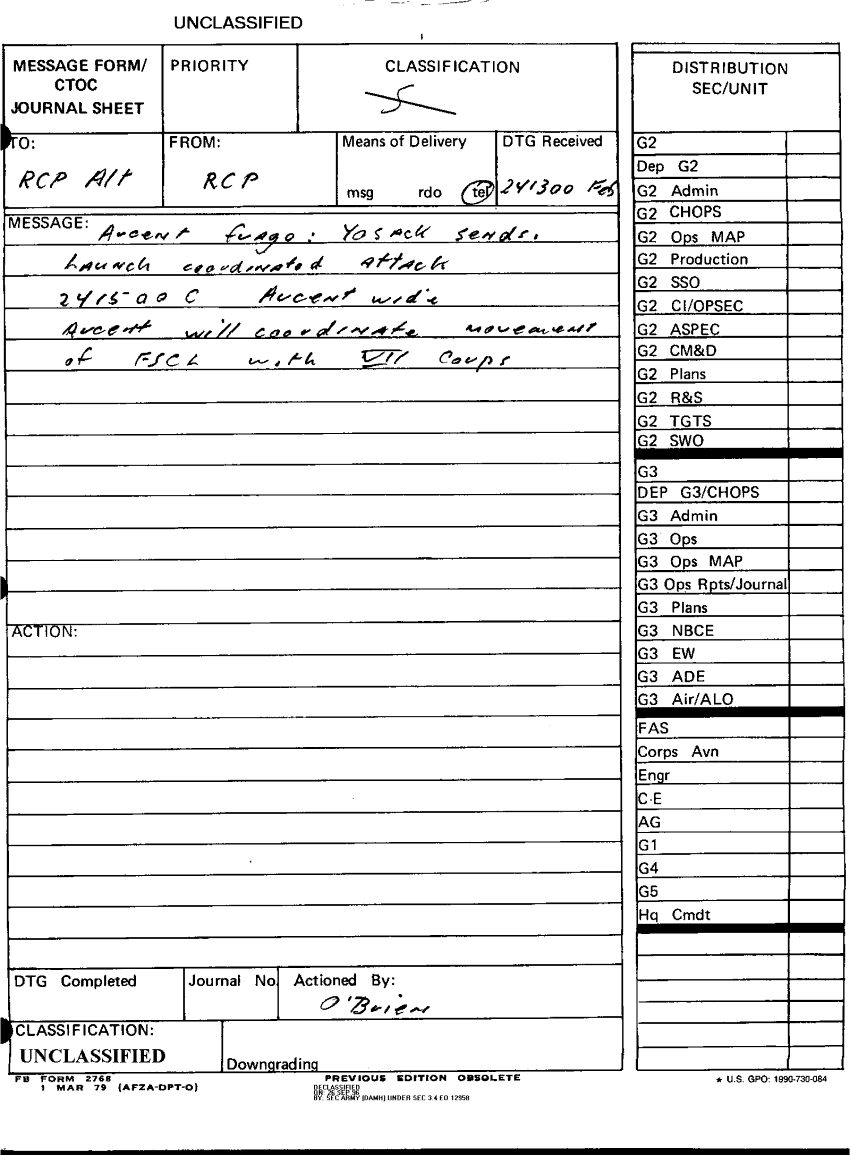 UNCLASSIFIED
MESSAGE FORM/
CTOC
JOURNAL SHEET
PRIORITY
CLASSIFICATION
S
TO:
RCP Alt
FROM:
RCP
Means of Delivery
msg rdo tel
DTG Received
241300 Feb
MESSAGE: Arcent frago: Yosack sends.
Launch coordinated attack
241500 C Arcent wide
Arcent will coordinate movement
of FSCL with VII Corps
ACTION:
DTG Completed
Journal No.
Actioned By:
O'Brien
CLASSIFICATION:
UNCLASSIFIED
Downgrading
FB FORM 2768
1 MAR 79 (AFZA-DPT-O)
PREVIOUS EDITION OBSOLETE
DECLASSIFIED
ON: 26 SEP 96
BY: SEC ARMY (DAMH) UNDER SEC 3.4 EO 12958
DISTRIBUTION
SEC/UNIT
G2
Dep G2
G2 Admin
G2 CHOPS
G2 Ops MAP
G2 Production
G2 SSO
G2 CI/OPSEC
G2 ASPEC
G2 CM&D
G2 Plans
G2 R&S
G2 TGTS
G2 SWO
G3
DEP G3/CHOPS
G3 Admin
G3 Ops
G3 Ops MAP
G3 Ops Rpts/Journal
G3 Plans
G3 NBCE
G3 EW
G3 ADE
G3 Air/ALO
FAS
Corps Avn
Engr
C-E
AG
G1
G4
G5
Hq Cmdt
★ U.S. GPO: 1990-730-084